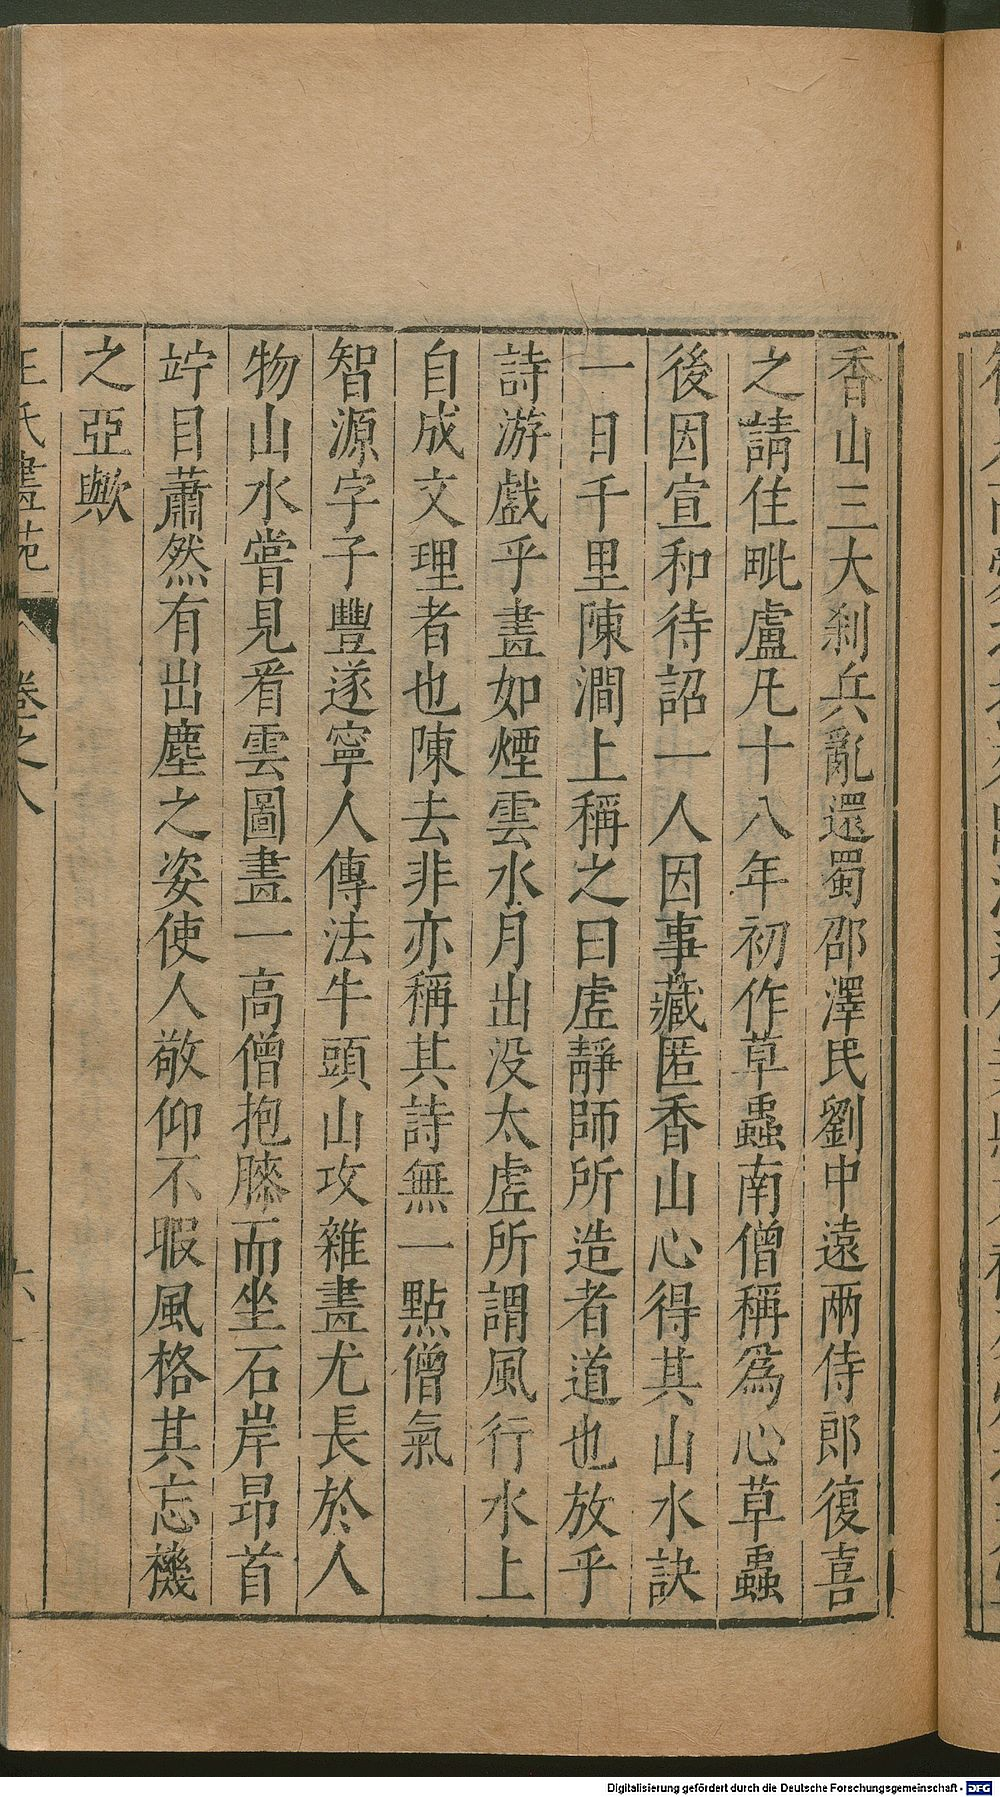 香山三大剎兵亂還蜀邵澤民劉中遠兩侍郎復喜
之請住毗盧凡十八年初作草蟲南僧稱爲心草蟲
後因宣和待詔一人因事藏匿香山心得其山水訣
一日千里陳澗上稱之曰虛靜師所造者道也放乎
詩游戲乎畫如煙雲水月出没太虛所謂風行水上
自成文理者也陳去非亦稱其詩無一點僧氣
智源字子豐遂寧人傳法牛頭山攻雜畫尤長於人
物山水嘗見看雲圖畫一高僧抱膝而坐石岸昂首
竚目蕭然有出塵之姿使人敬仰不暇風格其忘機
之亞歟
王氏畫苑 卷之八 六
Digitalisierung gefördert durch die Deutsche Forschungsgemeinschaft - DFG